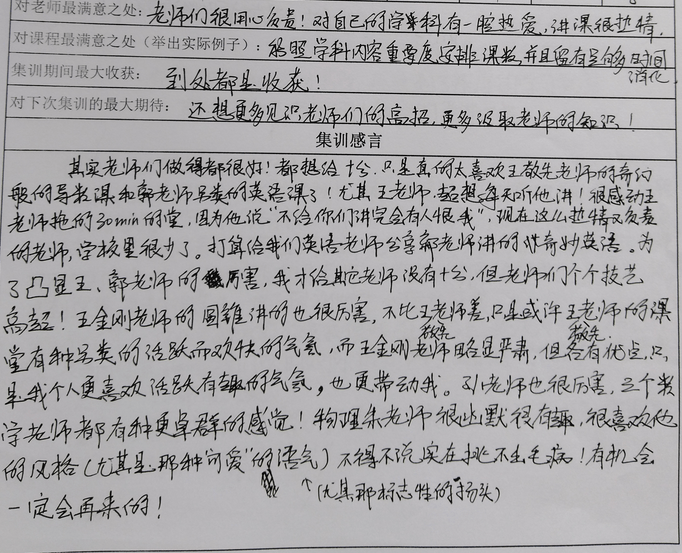 对老师最满意之处：老师们很用心负责！对自己的学科有一腔热爱，讲课很热情.
对课程最满意之处（举出实际例子）：能照学科内容重要度安排课数，并且留有足够时间
消化.
集训期间最大收获： 到处都是收获！
对下次集训的最大期待： 还想更多见识老师们的高招，更多汲取老师的知识！
集训感言
其实老师们做得都很好！都想给十分.只是真的太喜欢王敬先老师的奇幻
般的导数课和郭老师另类的英语课了！尤其王老师，超想每天听他讲！很感动王
老师拖的30min的堂，因为他说“不给你们讲完会有人恨我”，现在这么热情又负责
的老师，学校里很少了。打算给我们英语老师分享郭老师讲的那奇妙英语。为
了凸显王、郭老师的厉害，我才给其它老师没有十分，但老师们个个技艺
高超！王金刚老师的圆锥讲的也很厉害，不比王老师差，只是或许王老师的课
敬先 敬先
堂有种另类的活跃而欢快的气氛，而王金刚老师略显严肃，但各有优点，只
是我个人更喜欢活跃有趣的气氛，也更带动我。孙老师也很厉害，三个数
学老师都有种更卓群的感觉！物理朱老师很幽默很有趣，很喜欢他
的风格（尤其是那种“可爱”的语气）不得不说实在挑不出毛病！有机会
↑（尤其那标志性的扬头）
一定会再来的！